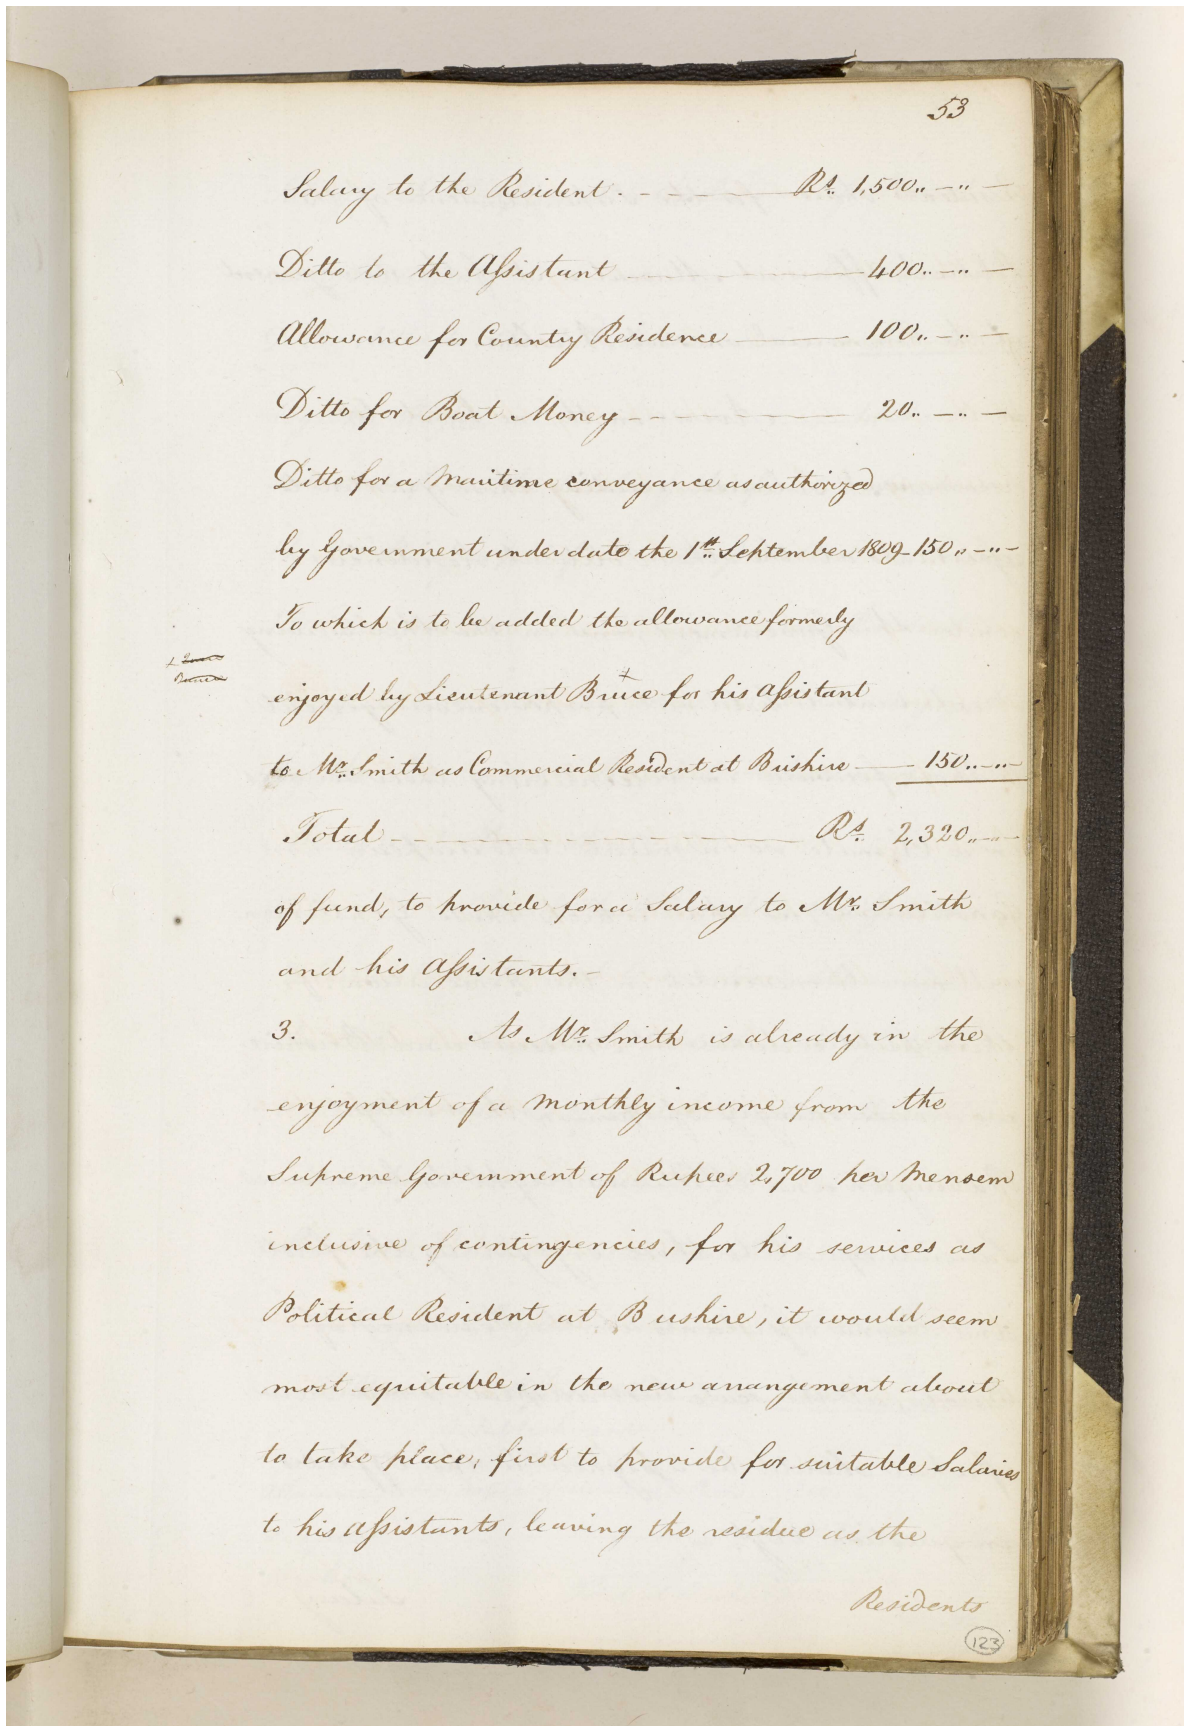 53
Salary to the Resident. - — — — Rs. 1,500,, — ,, —
Ditto to the Assistant — — — 400,, — ,, —
Allowance for Country Residence — — 100,, — ,, —
Ditto for Boat Money — — — 20,, — ,, —
Ditto for a Maritime conveyance as authorized
by Government under date the 1st September 1809 - 150,, — ,, —
To which is to be added the allowance formerly
enjoyed by Lieutenant Bruce + for his Assistant
to Mr. Smith as Commercial Resident at Bushire — 150,, — ,, —
Total — — — Rs. 2,320,, —
of fund, to provide for a Salary to Mr. Smith
and his Assistants. –
3. As Mr. Smith is already in the
enjoyment of a monthly income from the
Supreme Government of Rupees 2,700 per Mensem
inclusive of contingencies, for his services as
Political Resident at Bushire, it would seem
most equitable in the new arrangement about
to take place, first to provide for suitable Salaries
to his Assistants, leaving the residue as the
Residents
123